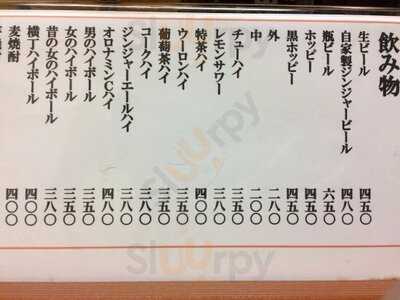 飲み物
生ビール 四五〇
自家製ジンジャービール 四八〇
瓶ビール 六五〇
ホッピー 四五〇
黒ホッピー 四五〇
外 二八〇
中 二〇〇
チューハイ 三五〇
レモンサワー 三八〇
特茶ハイ 四〇〇
ウーロンハイ 三五〇
葡萄茶ハイ 三五〇
コークハイ 三八〇
ジンジャーエールハイ 三八〇
オロナミンCハイ 四八〇
男のハイボール 三五〇
女のハイボール 三五〇
昔の女のハイボール 三八〇
横丁ハイボール 四〇〇
麦焼酎 四〇〇
Sluurpy
Sluurpy
Sluurpy